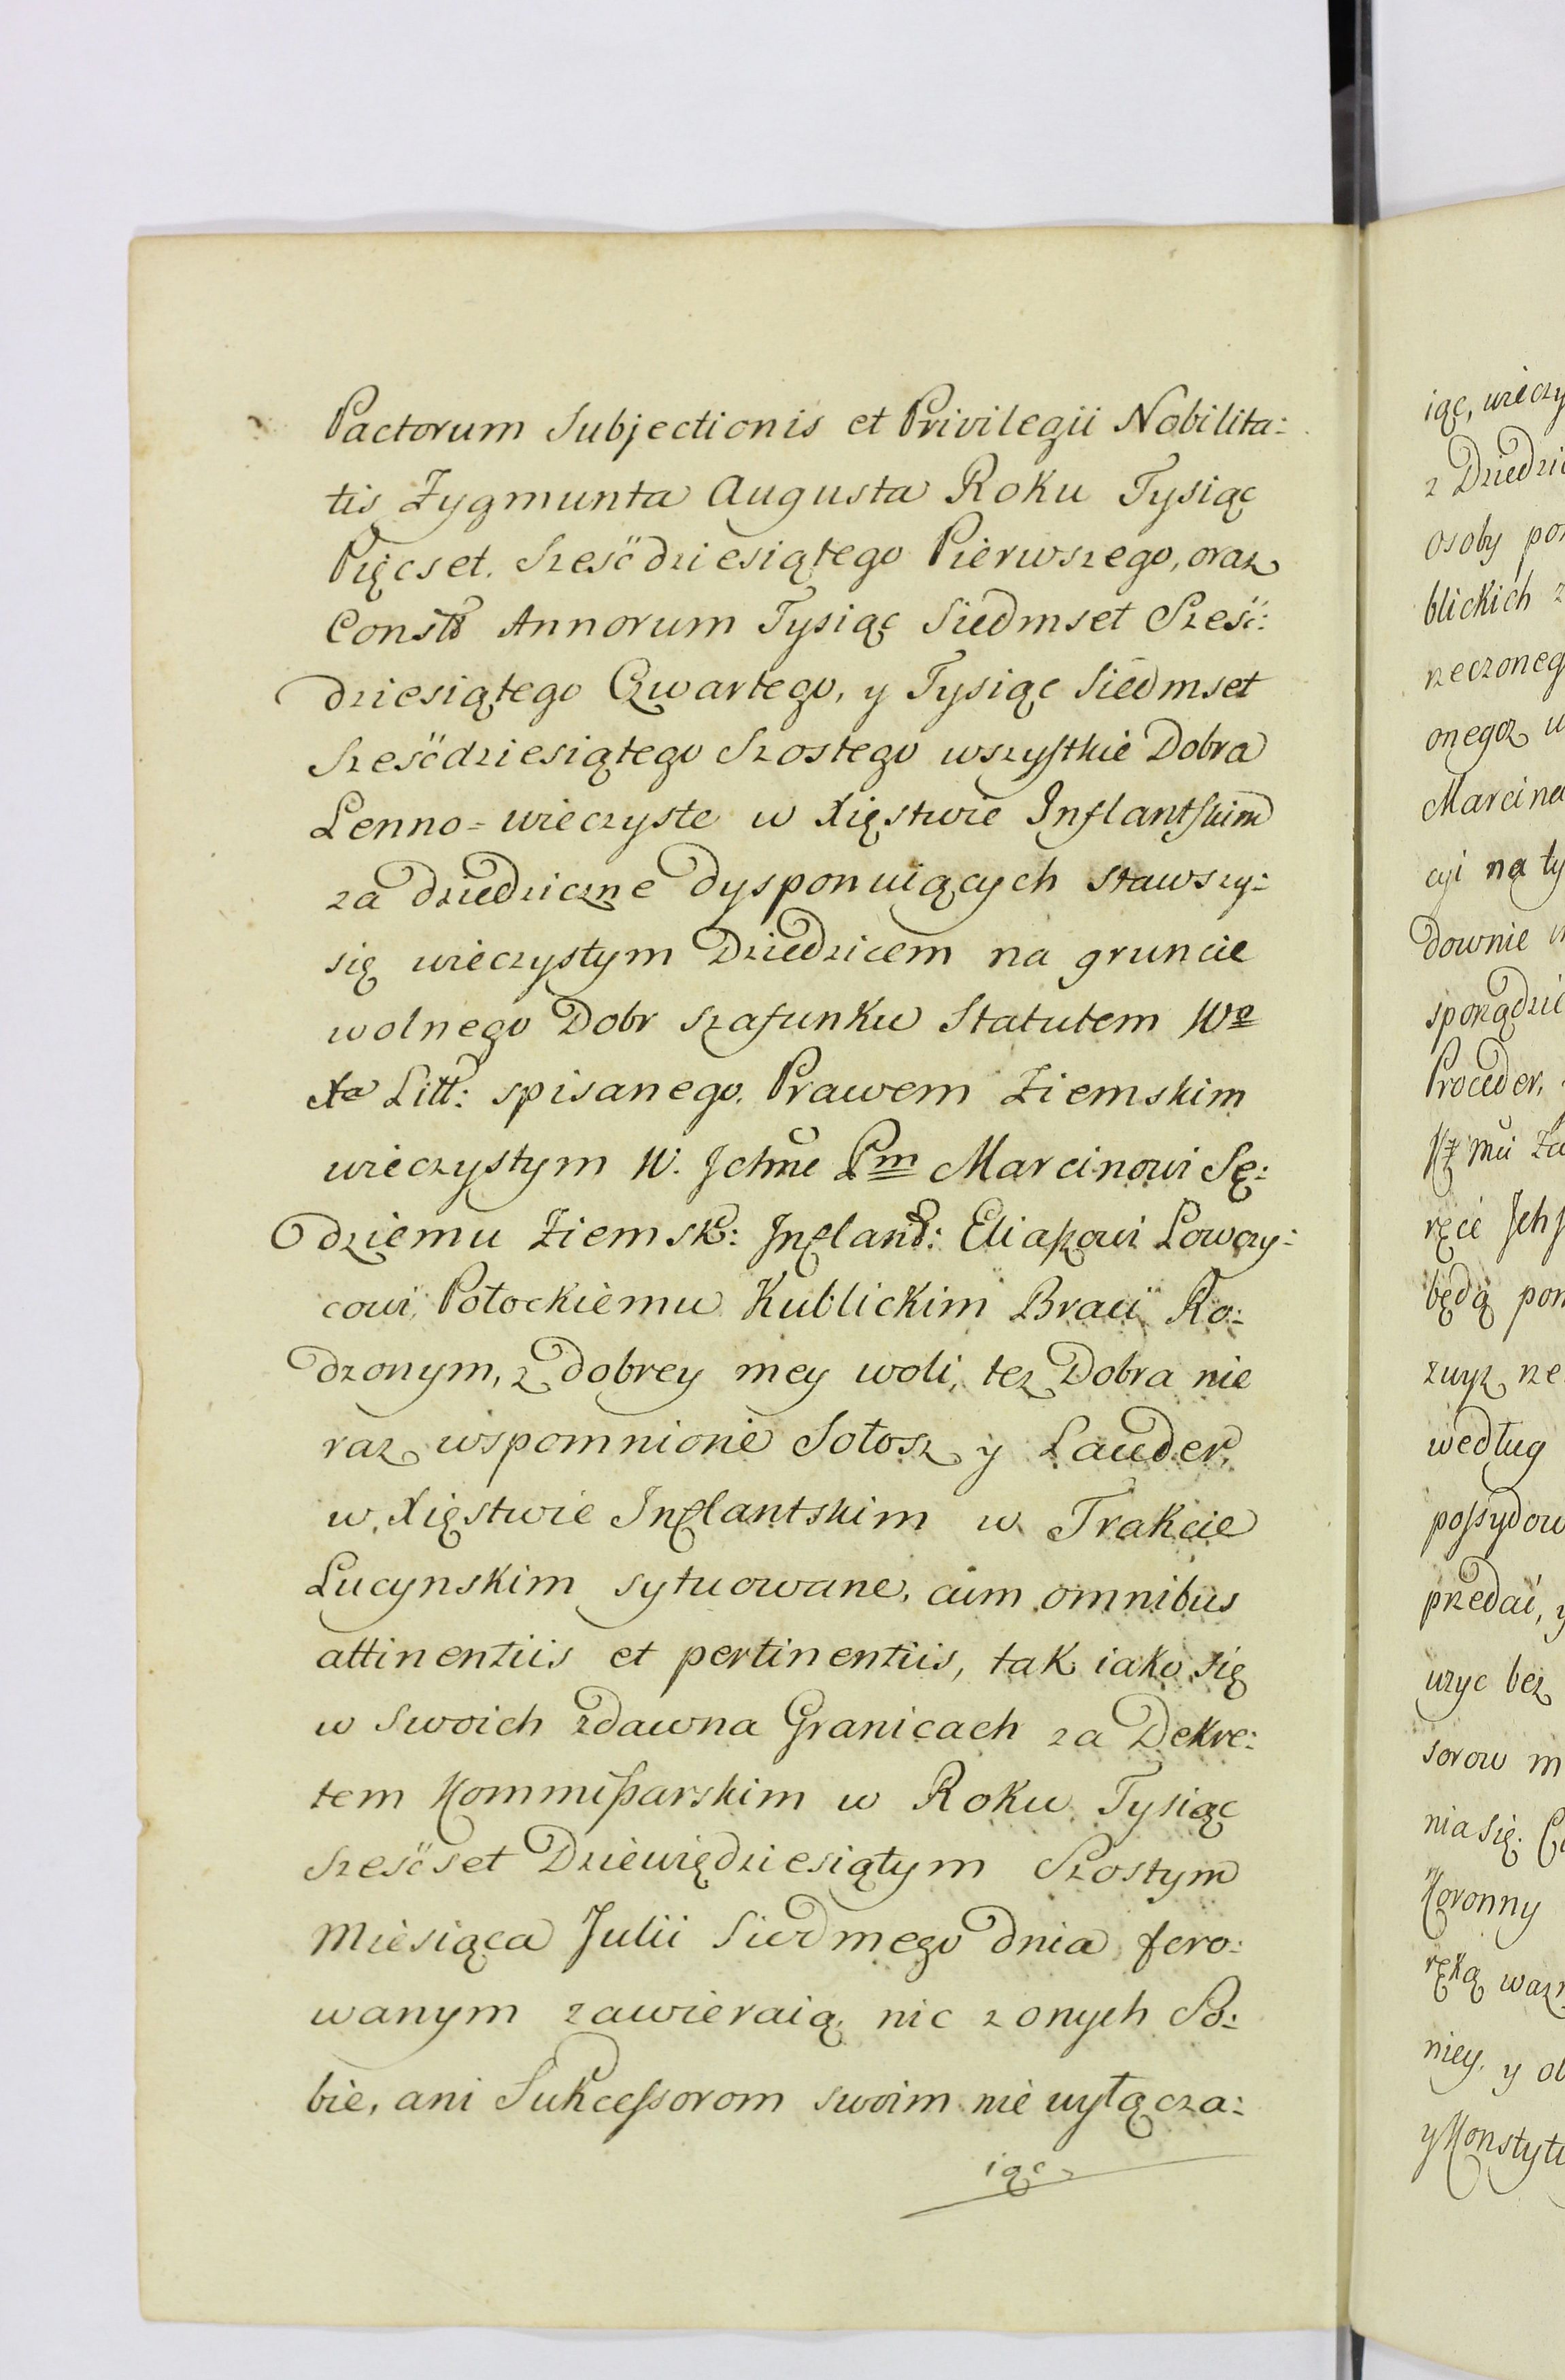 Pactorum Subjectionis et Privilegii Nobilita:
tis Zygmunta Augusta Roku Tysiąc
Pięcset. Sześćdziesiątego Pierwszego, oraz
Annorum Tysiąc Siedmset Sześć:
dziesiątego Czwartego, y Tysiąc Siedmset
Sześćdziesiątego Szostego wszystkie Dobra
Lenno=wieczyste w Xięstwie Inflantskim
za dziedziczne dysponuiących stawszy:
się wieczystym Dziedzicem na gruncie
wolnego Dobr szafunku Statutem Wo
Xa Litt: spisanego. Prawem Ziemskim
wieczystym W. Jchmć Pm Marcinowi Sę:
dziemu Ziemsk: Infland: Eliaszowi Łowczy:
cowi Połockiemu Kublickim Braci Ro:
dzonym, z dobrey mey woli, tez Dobra nie
raz wspomnione Sołosz y Lauder,
w Xięstwie Inflantskim w Trakcie
Lucynskim sytuowane, cum omnibus
attinentiis et pertinentiis, tak iako się
w Swoich zdawna Granicach za Dekre:
tem Kommissarskim w Roku Tysiąc
Sześćset Dziewiędziesiątym Szostym
Miesiąca Julii Siedmego dnia fero:
wanym zawieraią, nic z onych So:
bie, ani Sukcessorom swoim nie wyłącza:
iąc
iąc, wieczy
z Dziedzi
osoby po
blickich z
rzeczoneg
onegoz w
Marcina
cyi na ty
downie
sporządzi
Proceder,
ręce Jch
będą pon
zwyz rze
według
possydow
przedać, y
uzyc bez
sorow m
nia się.
Koronny
ręką waz
niey. y ob
y Konstytu